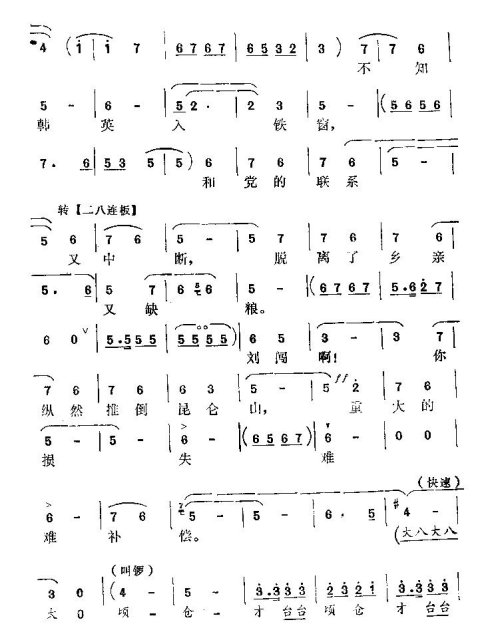 4 (i i 7 | 6 7 6 7 | 6 5 3 2 | 3) 7 | 7 6 |
不 知
5 - | 6 - | 5 2· | 2 3 | 5 - | (5 6 5 6 |
韩 英 入 铁 窗，
7· 6 | 5 3 5 | 5) 6 | 7 6 | 7 6 | 5 - |
和 党 的 联 系
转【二八连板】
5 6 | 7 6 | 5 - | 5 5 | 7 6 | 7 6 |
又 中 断， 脱 离 了 乡 亲
5· 6 | 5 7 | 6 6 | 5 - | (6 7 6 7 | 5·6 2 7 |
又 缺 粮。
6 0 | 5·5 5 5 | 5 5 5 5) | 6 6 | 3 - | 3 7 |
刘 闯 啊！ 你
7 6 | 7 6 | 6 3 | 5 - | 5 2 | 7 6 |
纵 然 推 倒 昆 仑 山， 重 大 的
5 - | 5 - | 6 - | (6 5 6 7) | 6 - | 0 0 |
损 失 难
（快速）
6 - | 7 6 | 5 - | 5 - | 6· 5 | #4 - |
难 补 偿。 （大八大八
（叫锣）
3 0 | (4 - | 5 - | 3·3 3 3 | 2 3 2 1 | 3·3 3 3 |
大 0 顷 - 仓 - 才 台台 顷 仓 才 台台